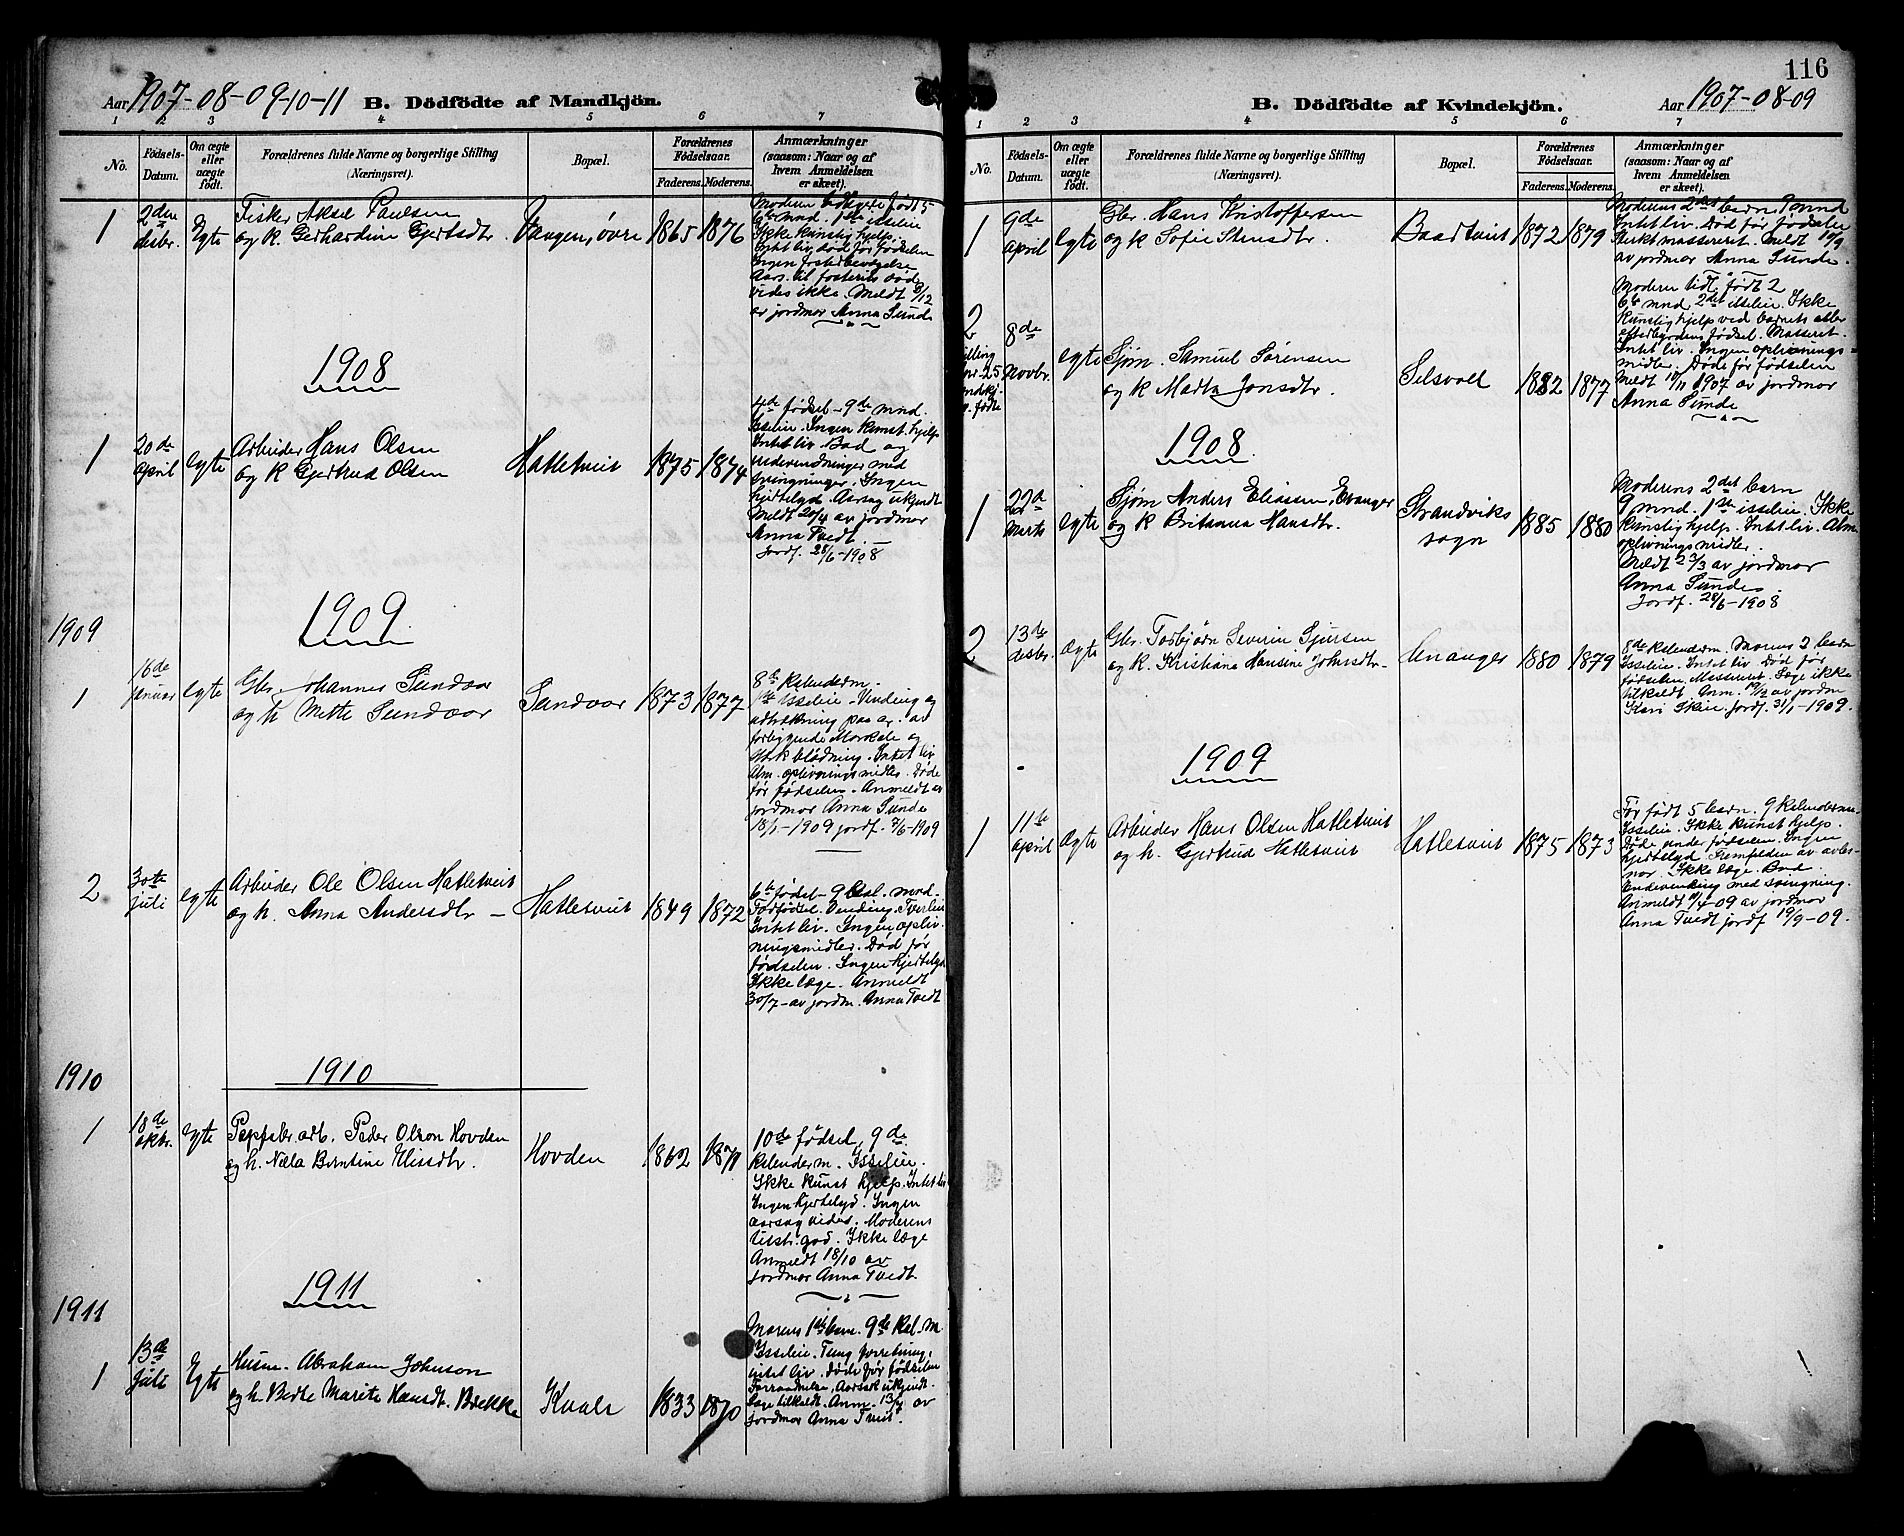 Aar 1907-08-09-10-11 B. Dödfödte af Mandkjön.
1 2 3 4 5 6 7
No.
Födsels-
Datum.
Om ægte
eller
uægte
födt.
Forældrenes fulde Navne og borgerlige Stilling
(Næringsvei).
Bopæl.
Forældrenes
Födselsaar.
Faderens. Moderens.
Anmærkninger
(saasom: Naar og af
hvem Anmeldelsen
er skeet).
1
2den
desbr.
Egte
Fisker Aksel Paulsen
og k. Gerhardine Gjertsdtr.
Vangen, øvre
1865 1876
Moderen tidligere født 5
6te mnd. 1ste isseleie
Ikke kunstig hjelp.
Intet liv. Død før fødselen
Ingen fosterbevægelse
Aars. til fosterets død
vides ikke. Meldt 3/12
av jordmor Anna Sunde
1908
1
20de
april
egte
Arbeider Hans Olsen
og k Gjertrud Olsen
Hatletveit
1875 1874
4de fødsel - 9de mnd.
Isseleie. Ingen kunst. hjelp
Intet liv. Bad og
indvendninger med
svingninger. Ingen
hjertelyd. Aarsag ukjendt
Meldt 20/4 av jordmor
Anna Tvedt.
Jordf. 28/6-1908
1909
1909
1
16de
januar
egte
Gbr. Johannes Sundvor
og h. Mette Sundvor
Sandvor
1873 1877
8de kalenderm.
Isseleie - Vending og
udtrækning paa gr. av
forliggende Morkake og
sterk blødning. Intet liv
Alm. oplivningsmidler. Døde
før fødselen. Anmeldt av
jordmor Anna Sunde
18/1-1909 jordf. 7/6-1909
2
30te
juli
egte
Arbeider Ole Olsen Hatletveit
og h. Anna Andersdtr -
Hatletveit
1849 1872
6te fødsel - 9 kal. mnd.
Fodfødsel. Vending. Tverleie
Intet liv. Ingen opliv-
ningsmidler. Død før
fødselen. Ingen hjertelyd
Ikke læge. Anmeldt
30/7 - av jordm. Anna Tvedt
1910
1910
1
18de
okbr.
egte
Papfabr.arb. Peder Olson Hovden
og h. Næla Berntine Nilsdtr.
Hovden
1862 1871
10de fødsel, 9de
kalenderm. Isseleie.
Ikke kunst hjelp. Intet liv
Ingen hjertelyd. Ingen
aarsag vides. Moderens
tilstr. god. Ikke læge
Anmeldt 18/10 av
jordmor Anna Tvedt.
1911
1911
1
13de
juli
Egte
Husm. Abraham Johnson
og h. Berte Marite Hansdt. Brekke
Kvale
1833 1870
Morens 1ste barn. 9de kal. m
Isseleie. Tung forretning,
intet liv. Døde før fødselen
Forraadnelse, Aarsak ukjendt.
Læge tilkaldt. Anm. 13/7 av
jordmor Anna Tveit.
116
B. Dödfödte af Kvindekjön. Aar 1907-08-09
1 2 3 4 5 6 7
No.
Födsels-
Datum.
Om ægte
eller
uægte
födt.
Forældrenes fulde Navne og borgerlige Stilling
(Næringsvei).
Bopæl.
Forældrenes
Födselsaar.
Faderens. Moderens.
Anmærkninger
(saasom: Naar og af
hvem Anmeldelsen
er skeet).
1
9de
april
egte
Gbr. Hans Kristoffersen
og k Sofie Stensdtr.
Baadtveit
1872 1879
Moderens 2det barn, 7 mnd
Intet liv. Død før fødselen
Sterkt massereret. Meldt
av jordmor Anna Sunde.
2
8de
Novbr.
egte
Sjøm. Samuel Sørensen
og k Marta Jonsdtr.
Selsvold
1882 1877
Moderen tidl. født 2
6te mnd. 2det isseleie. Ikke
kunstig hjelp ved barnets eller
efterbyrdens fødsel. Masseret.
Intet liv. Ingen oplivnings-
midler. Døde før fødselen
Meldt 10/11 1907 av jordmor
Anna Sunde
1908
1
22de
Marts
egte
Sjøm Anders Eliassen, Evanger
og k Britanna Hansdtr.
Strandviks
sogn
1885 1880
Moderens 2det barn
9 mnd. 1ste isseleie. Ikke
kunstig hjelp. Intet liv. Alm.
oplivningsmidler.
Meldt 23/3 av jordmor
Anna Sunde.
Jordf. 28/6-1908
2
13de
desbr.
egte
Gbr. Torbjørn Severin Sjursen
og k. Kristiana Hansine Johnsdtr-
Enanger
1880 1879
8de kalenderm. Morens 2 barn
Isseleie. Intet liv Død før
fødselen. Masseret. Læge ikke
tilkaldt. Anm. 19/12 av jordm
Kari Skeie. jordf. 31/1-1909.
1909
1
11te
april
egte
Arbeider Hans Olsen Hatletveit
og h. Gjertrud Hatletveit
Hatletveit
1875 1873
Før født 5 barn. 9 kalenderm.
Isseleie. Ikke kunst hjelp.
Døde under fødselen. Ingen
hjertelyd. Fremfalden av navles-
nor. Ikke læge. Bad
Endevending med svingning.
Anmeldt 11/4-09 av jordmor
Anna Tvedt jordf 19/9-09.